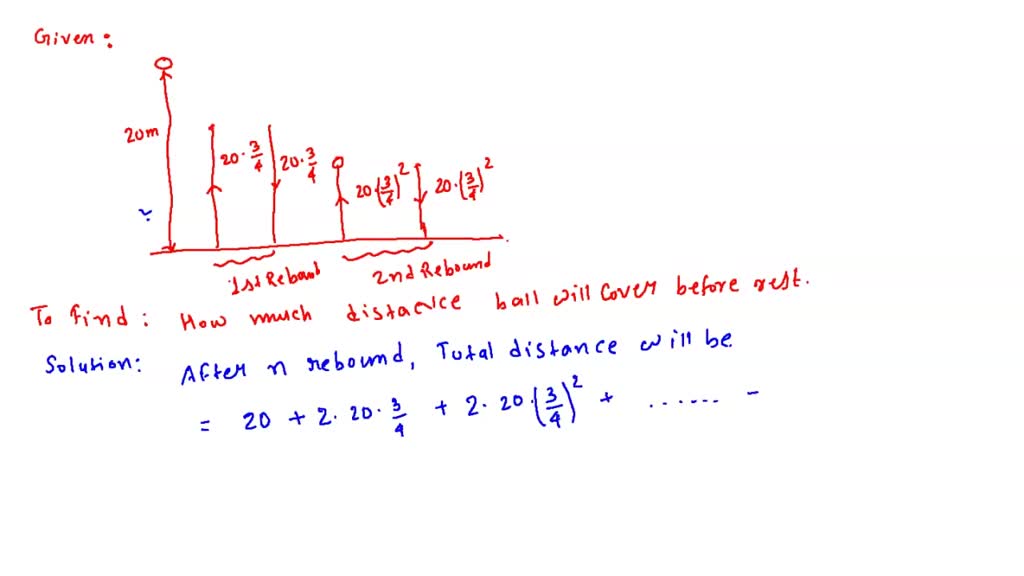 Given:
20m
20·3/4
20·3/4
20·(3/4)^2
20·(3/4)^2
1st Rebound
2nd Rebound
To find: How much distance ball will cover before rest.
Solution: After n rebound, Total distance will be
= 20 + 2·20·3/4 + 2·20·(3/4)^2 + ....... -